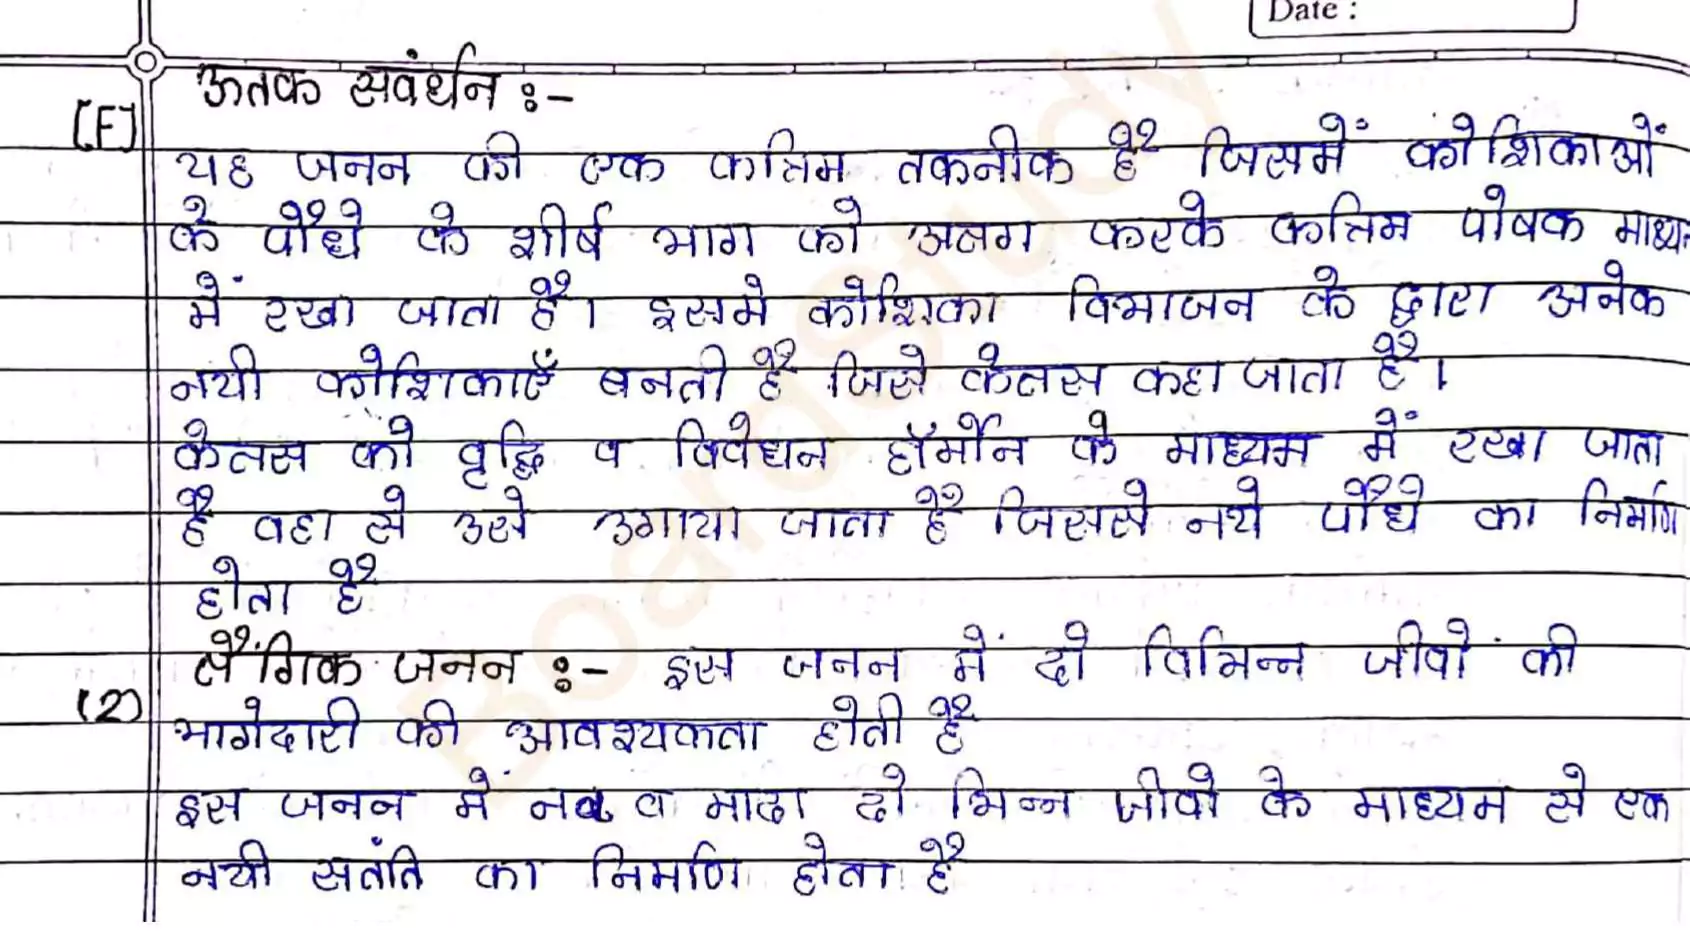 Date :
ऊतक सवंर्धन :-
[F]
यह जनन की एक कत्तिम तकनीक है जिसमें कोशिकाओं
के पौधे के शीर्ष भाग को अलग करके कत्तिम पोषक माध्यम
में रखा जाता है। इसमे कोशिका विभाजन के द्वारा अनेक
नयी कोशिकाएँ बनती है जिसे केलस कहा जाता है।
केलस को वृद्धि व विवेधन हॉर्मोन के माध्यम में रखा जाता
है वहा से उसे उगाया जाता है जिससे नये पौधे का निर्माण
होता है
(2) लैंगिक जनन :- इस जनन में दो विभिन्न जीवों की
भागेदारी की आवश्यकता होती है
इस जनन में नर व मादा दो भिन्न जीवो के माध्यम से एक
नयी सतंति का निमाणि होता है
BoardStudy